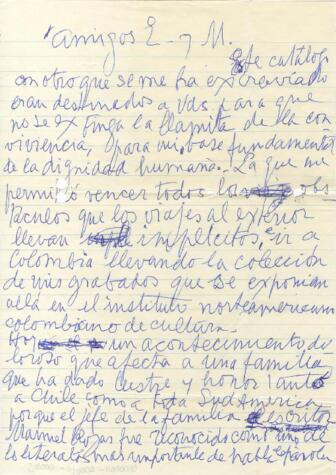 Amigos E- y M.
Este catálogo
con otro que se me ha extraviado
eran destinados a Vds para que
no se extinga la llamita de la con
vivencia, para mi base fundamental
de la dignidad humana. La que me
permitió vencer todos los obs
táculos que los viajes al exterior
llevan implícitos, e ir a
Colombia llevando la colección
de mis grabados que se exponian
allá en el instituto norteamericano
colombiano de cultura.
un acontecimiento do
loroso que afecta a una familia
que ha dado lustre y honor tanto
a Chile como a toda Sud America
porque el jefe de la familia escritor
Manuel Rojas fue reconocido como uno de
los literatos mas importante de habla Española